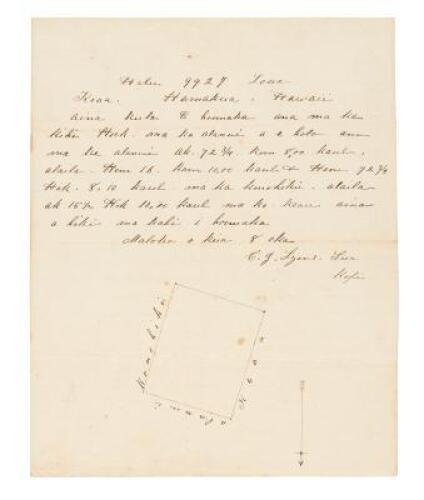 Helu 9927 Loua
Keaa. Hamakua. Hawaii
aina kula E hoomaka ana ma ke
kihi Hok. ana ke alanui a e holo ana
ma ke alanui Ak. 72 3/4 Kom 8,00 kaul.
alaila Hem 16. Kom 10,00 kaul Hem 72 3/4
Hik. 8.10 kaul ma ka konohiki. alaila
ak 15 1/2 Hik 10,00 kaul ma ko aina
a hiki ma kahi i hoomaka
Maloko o keia 8 eka
C. J. Lyons. Lua
Konohiki
alanui